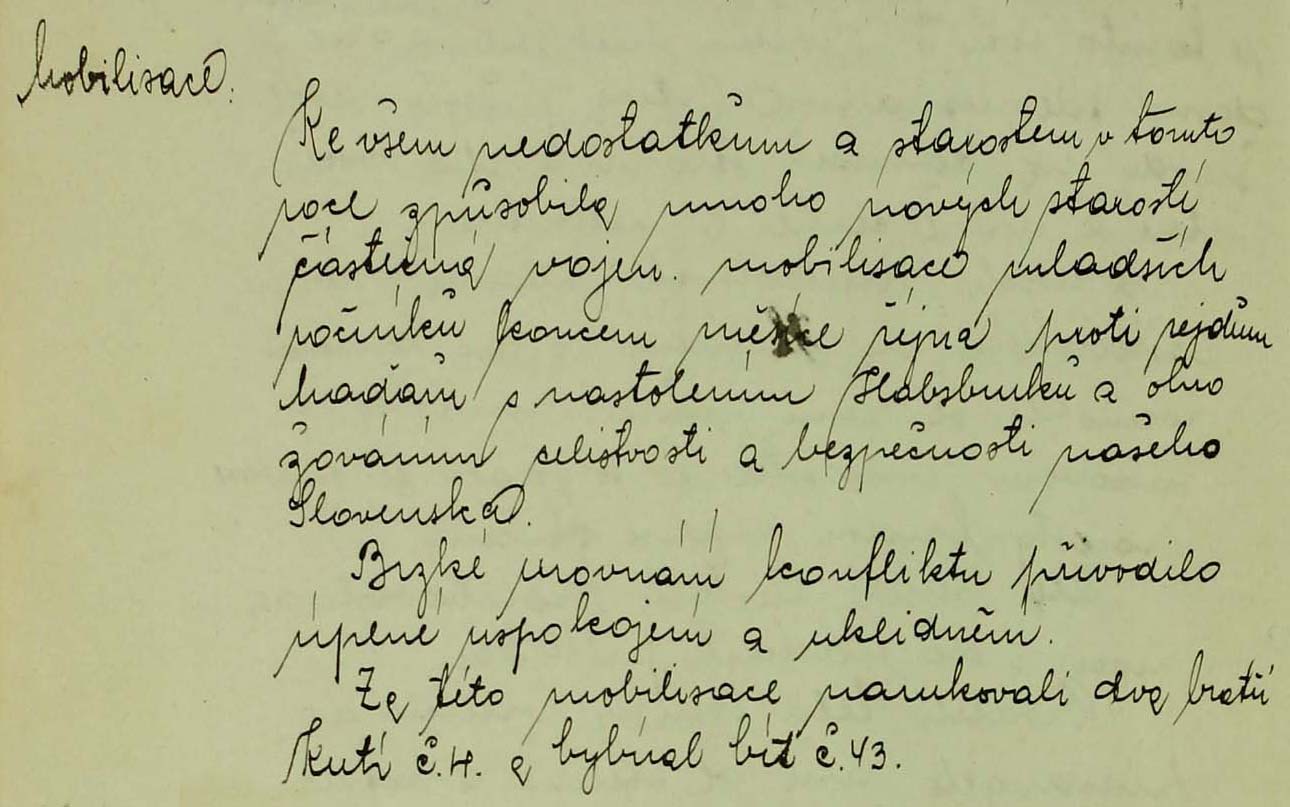 Mobilisace.
Ke všem nedostatkům a starostem v tomto
roce způsobila mnoho nových starostí
částečná vojen. mobilisace mladších
ročníků koncem měsíce října proti rejdům
Maďarů s nastolením Habsburků a ohro
žováním celistvosti a bezpečnosti našeho
Slovenska.
Brzké urovnání konfliktu přivodilo
úplné uspokojení a uklidnění.
Za této mobilisace narukovali dva bratři
Kutí č. 4. a
č. 43.